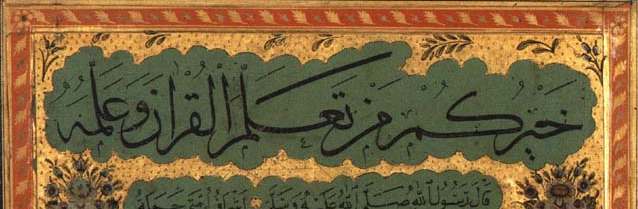 خيركم من تعلم القرآن وعلمه
قال رسول الله صلى الله عليه وسلم